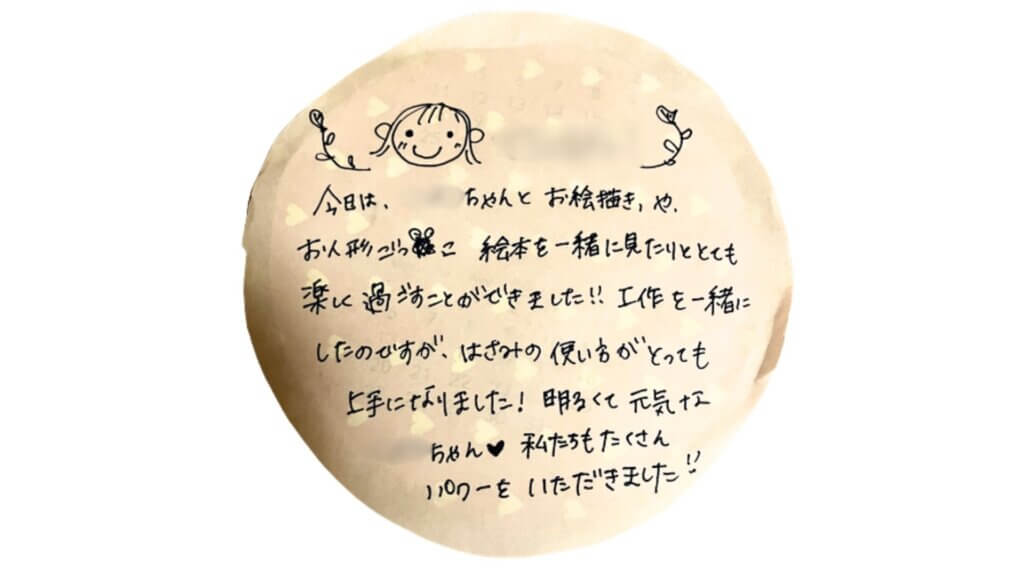 今日は、 ちゃんと お絵描き, や.
お人形ごっこ 絵本を一緒に見たりととても
楽しく 過ごすことができました!! 工作を一緒に
したのですが、はさみの使い方がとっても
上手になりました! 明るくて 元気な
ちゃん♥ 私たちもたくさん
パワーを いただきました!!